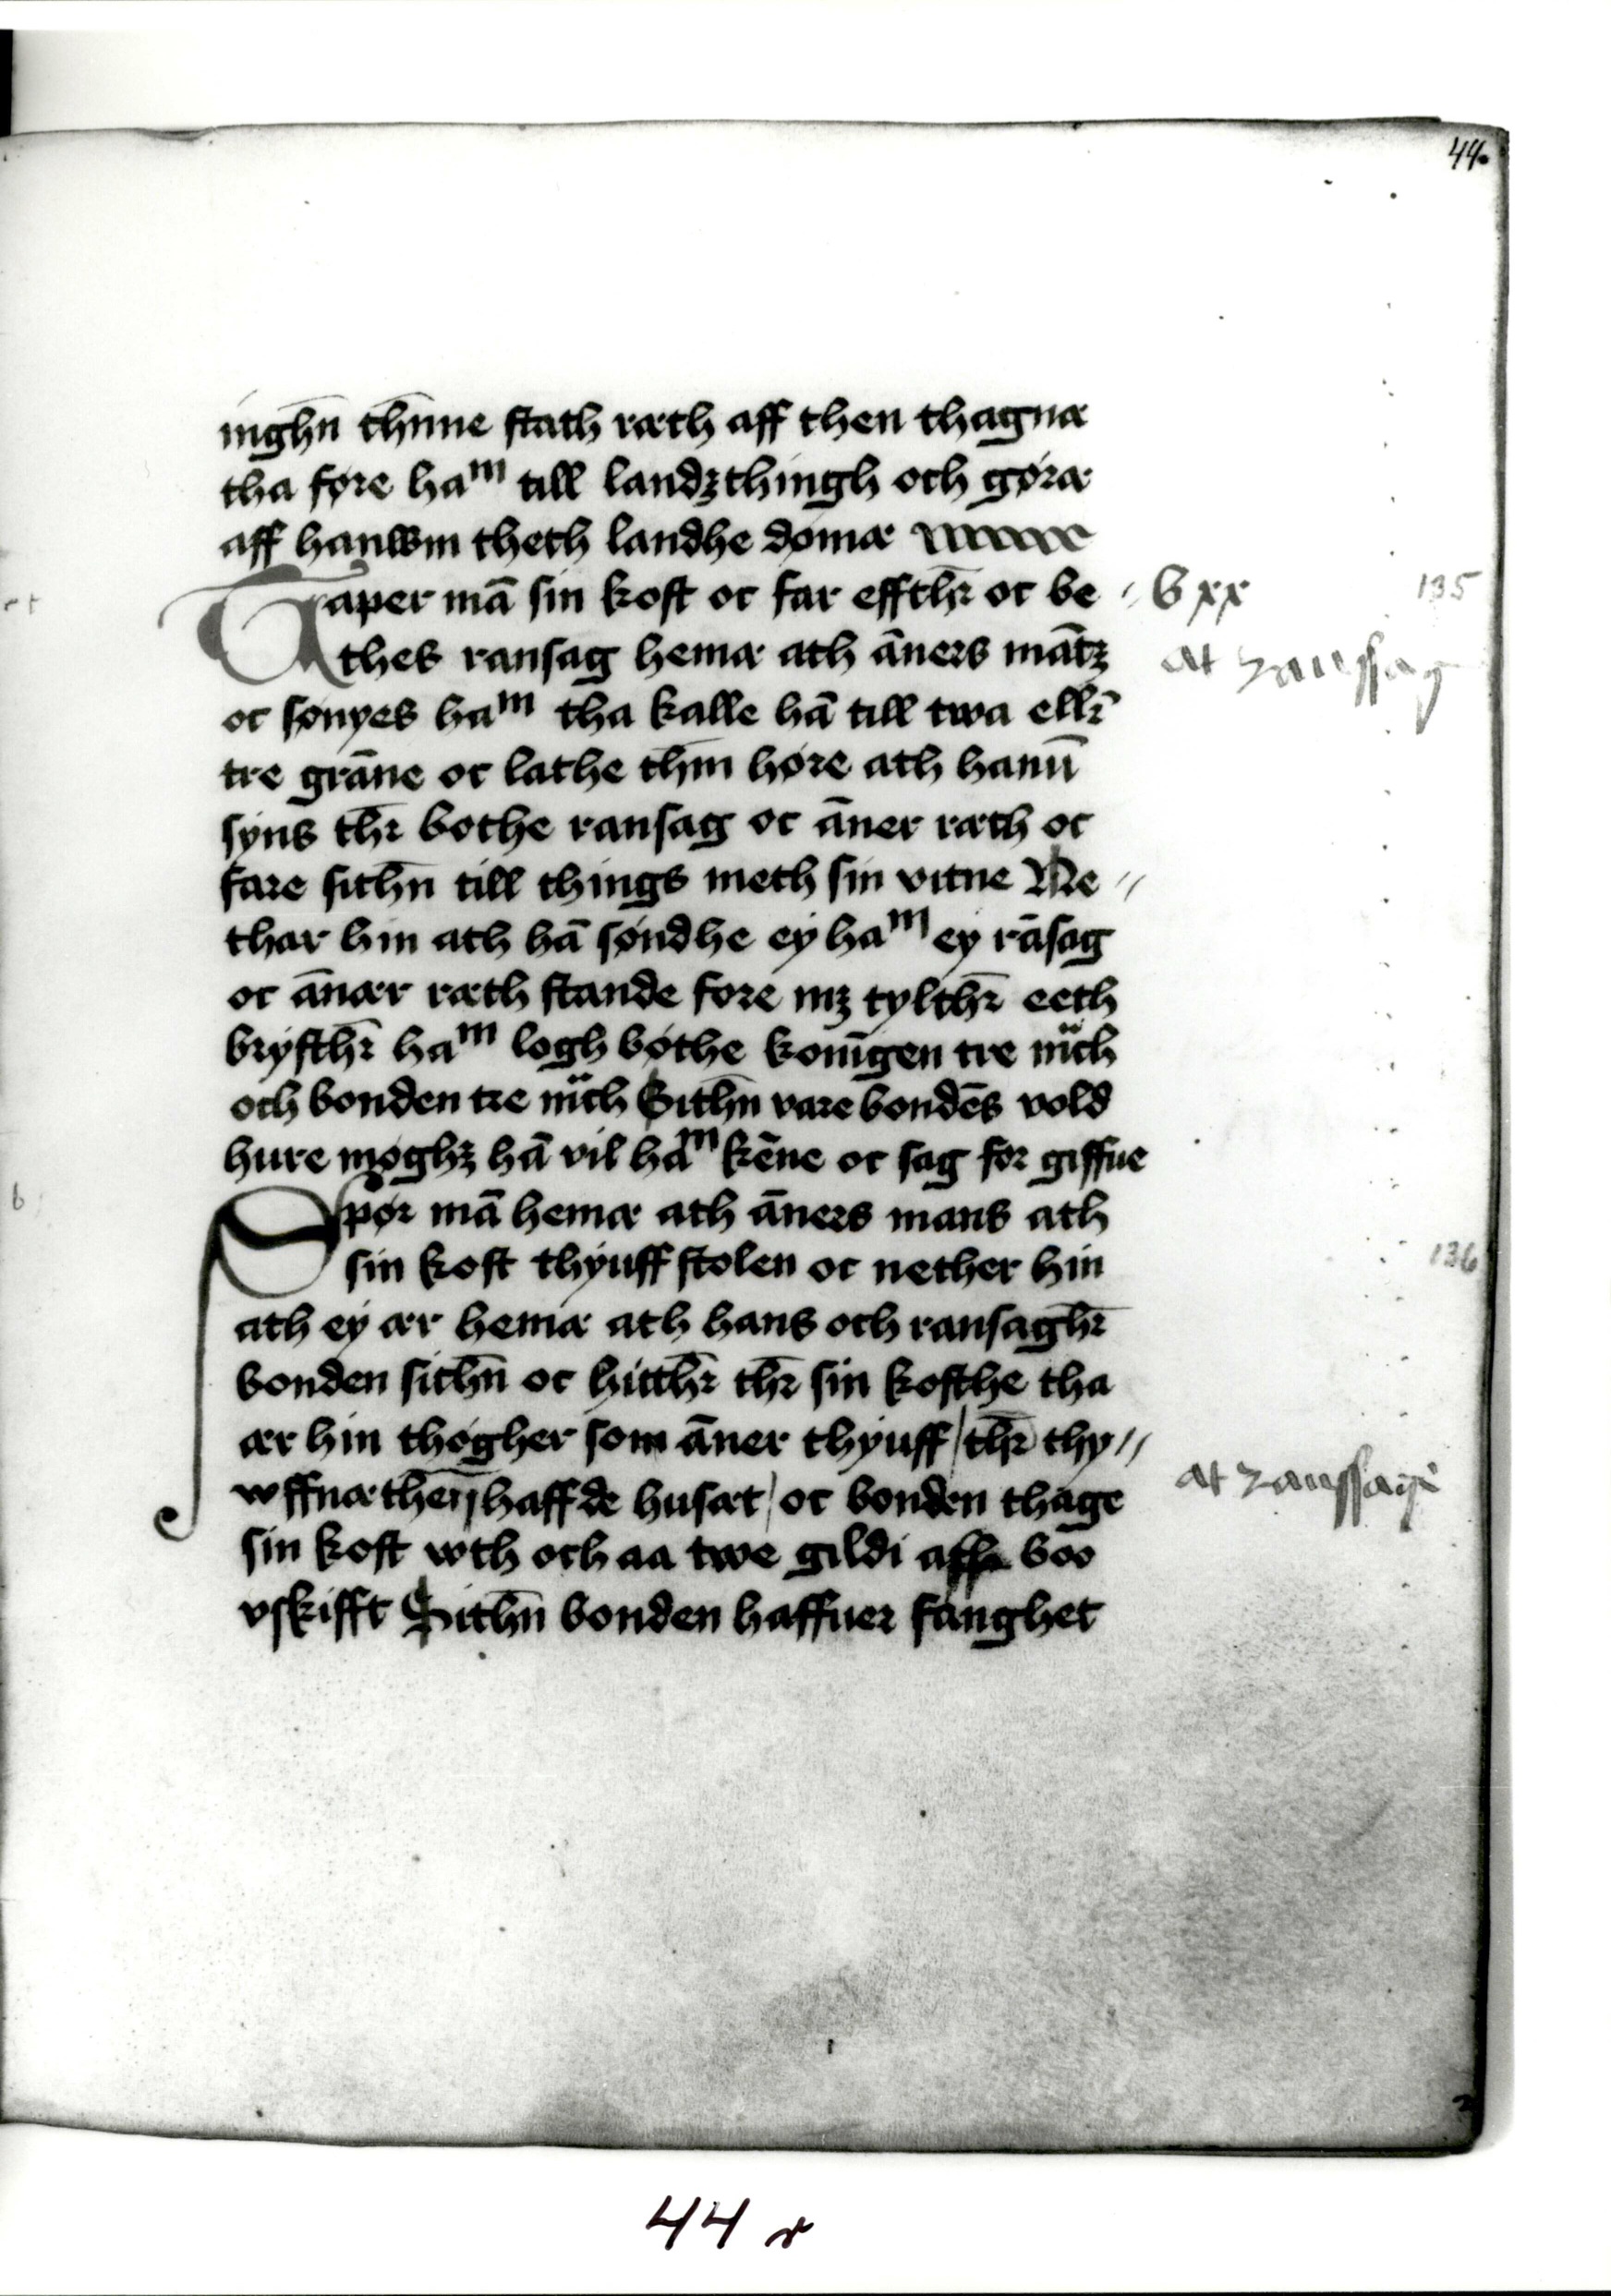 44.
inghn̄ thn̄ne stath ræth aff then thagnæ
tha føre haᵐ till landzthingh och gøræ
aff hanwm theth landhe dømæ
Taper mā sin kost oc far effthr̄ oc be
thes ransag hemæ ath āners mātz
oc sønyes haᵐ tha kalle hā till twa ellr̄
tre grāne oc lathe thm̄ høre ath hanū
syns thr̄ bothe ransag oc āner ræth oc
fare sithn̄ till things meth sin vitne Ne //
thar hin ath hā søndhe ey haᵐ ey rāsag
oc ānær ræth stande fore mz tylthr̄ eeth
brysthr̄ haᵐ logh bøthe konīgen tre mc̈h
och bonden tre mc̈h Sithn̄ vare bondēs vold
hure møghz hā vil haᵐ kēne oc sag for giffue
Spør mā hemæ ath āners mans ath
sin kost thyuff stolen oc nether hin
ath ey ær hemæ ath hans och ransaghr̄
bonden sithn̄ oc hitthr̄ thr̄ sin kosthe tha
ær hin thøgher som āner thyuff / thr̄ thy //
wffnæthen haffde husæt / oc bonden thage
sin kost wth och aa twe gildi aff boo
vskifft Sithn̄ bonden haffuer fanghet
b xx
135
at ranssag
136
at ranssage
44 r